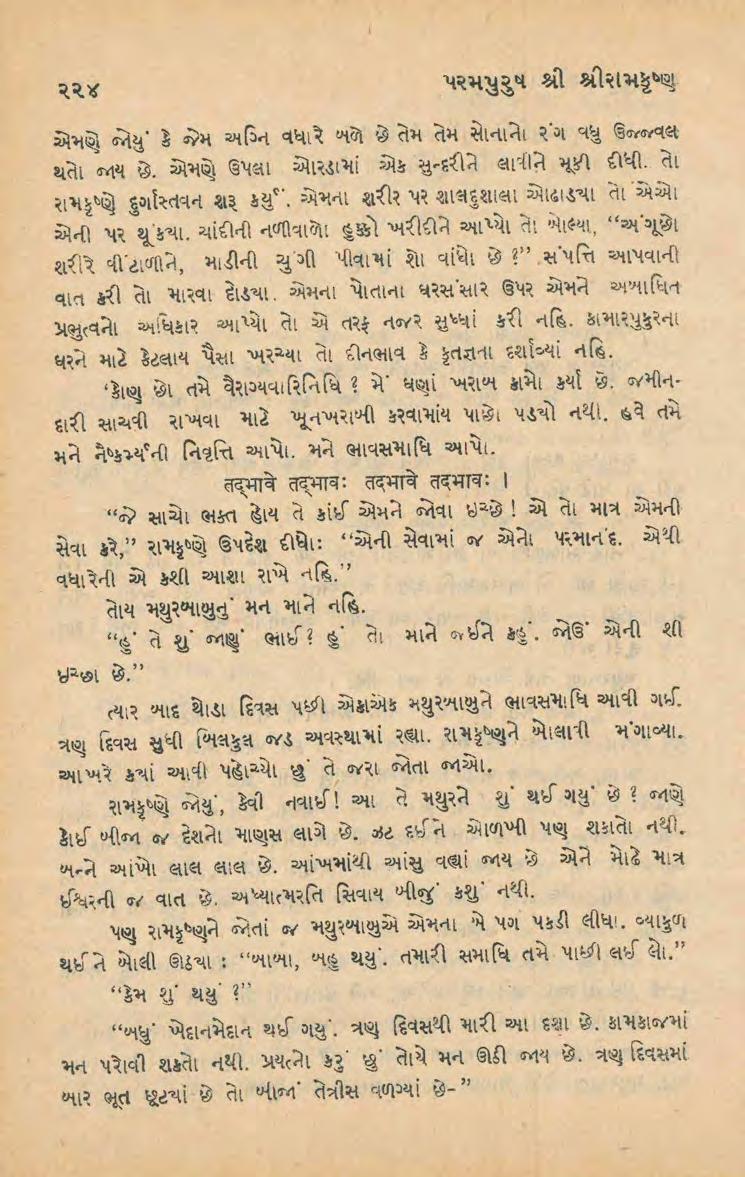 ૨૨૪
પરમપુરુષ શ્રી શ્રીરામકૃષ્ણ
એમણે જોયું કે જેમ અગ્નિ વધારે બળે છે તેમ તેમ સોનાનો રંગ વધુ ઉજ્જ્વલ
થતો જાય છે. એમણે ઉપલા ઓરડામાં એક સુન્દરીને લાવીને મૂકી દીધી. તો
રામકૃષ્ણે દુર્ગાસ્તવન શરૂ કર્યું. એમના શરીર પર શાલદુશાલા ઓઢાડ્યા તો એઓ
એની પર થૂંક્યા. ચાંદીની નળીવાળો હુક્કો ખરીદીને આપ્યો તો બોલ્યા, “અંગૂછો
શરીરે વીંટાળીને, માડીની ચુંગી પીવામાં શો વાંધો છે ?” સંપત્તિ આપવાની
વાત કરી તો મારવા દોડ્યા. એમના પોતાના ઘરસંસાર ઉપર એમને અબાધિત
પ્રભુત્વનો અધિકાર આપ્યો તો એ તરફ નજર સુધ્ધાં કરી નહિ. કામારપુકુરના
ઘરને માટે કેટલાય પૈસા ખરચ્યા તો દીનભાવ કે કૃતજ્ઞતા દર્શાવ્યાં નહિ.
‘કોણ છો તમે વૈરાગ્યવારિનિધિ ? મેં ઘણાં ખરાબ કામો કર્યા છે. જમીન-
દારી સાચવી રાખવા માટે ખૂનખરાબી કરવામાંય પાછો પડયો નથી. હવે તમે
મને નૈષ્કર્મ્યની નિવૃત્તિ આપો. મને ભાવસમાધિ આપો.
तद्‌भावे तद्‌भावः तदभावे तदभावः ।
“જે સાચો ભક્ત હોય તે કાંઈ એમને જોવા ઇચ્છે ! એ તો માત્ર એમની
સેવા કરે,” રામકૃષ્ણે ઉપદેશ દીધોઃ “એની સેવામાં જ એનો પરમાનંદ. એથી
વધારેની એ કશી આશા રાખે નહિ.”
તોય મથુરબાબુનું મન માને નહિ.
“હું તે શું જાણું ભાઈ? હું તો માને જઈને કહું. જોઉં એની શી
ઇચ્છા છે.”
ત્યાર બાદ થોડા દિવસ પછી એકાએક મથુરબાબુને ભાવસમાધિ આવી ગઈ.
ત્રણ દિવસ સુધી બિલકુલ જડ અવસ્થામાં રહ્યા. રામકૃષ્ણને બોલાવી મંગાવ્યા.
આખરે ક્યાં આવી પહોચ્યો છું તે જરા જોતા જાઓ.
રામકૃષ્ણે જોયું, કેવી નવાઈ! આ તે મથુરને શું થઈ ગયું છે ? જાણે
કોઈ બીજા જ દેશનો માણસ લાગે છે. ઝટ દઈને ઓળખી પણ શકાતો નથી.
બન્ને આંખો લાલ લાલ છે. આંખમાંથી આંસુ વહ્યાં જાય છે એને મોઢે માત્ર
ઈશ્વરની જ વાત છે. અધ્યાત્મરતિ સિવાય બીજું કશું નથી.
પણ રામકૃષ્ણને જોતાં જ મથુરબાબુએ એમના બે પગ પકડી લીધા. વ્યાકુળ
થઈને બોલી ઊઠ્યા : “બાબા, બહુ થયું. તમારી સમાધિ તમે પાછી લઈ લો.”
“કેમ શું થયું ?”
“બધું ખેદાનમેદાન થઈ ગયું. ત્રણ દિવસથી મારી આ દશા છે. કામકાજમાં
મન પરોવી શકતો નથી. પ્રયત્નો કરું છું તોયે મન ઊડી જાય છે. ત્રણ દિવસમાં
બાર ભૂત છૂટયાં છે તો બીજાં તેત્રીસ વળગ્યાં છે-”